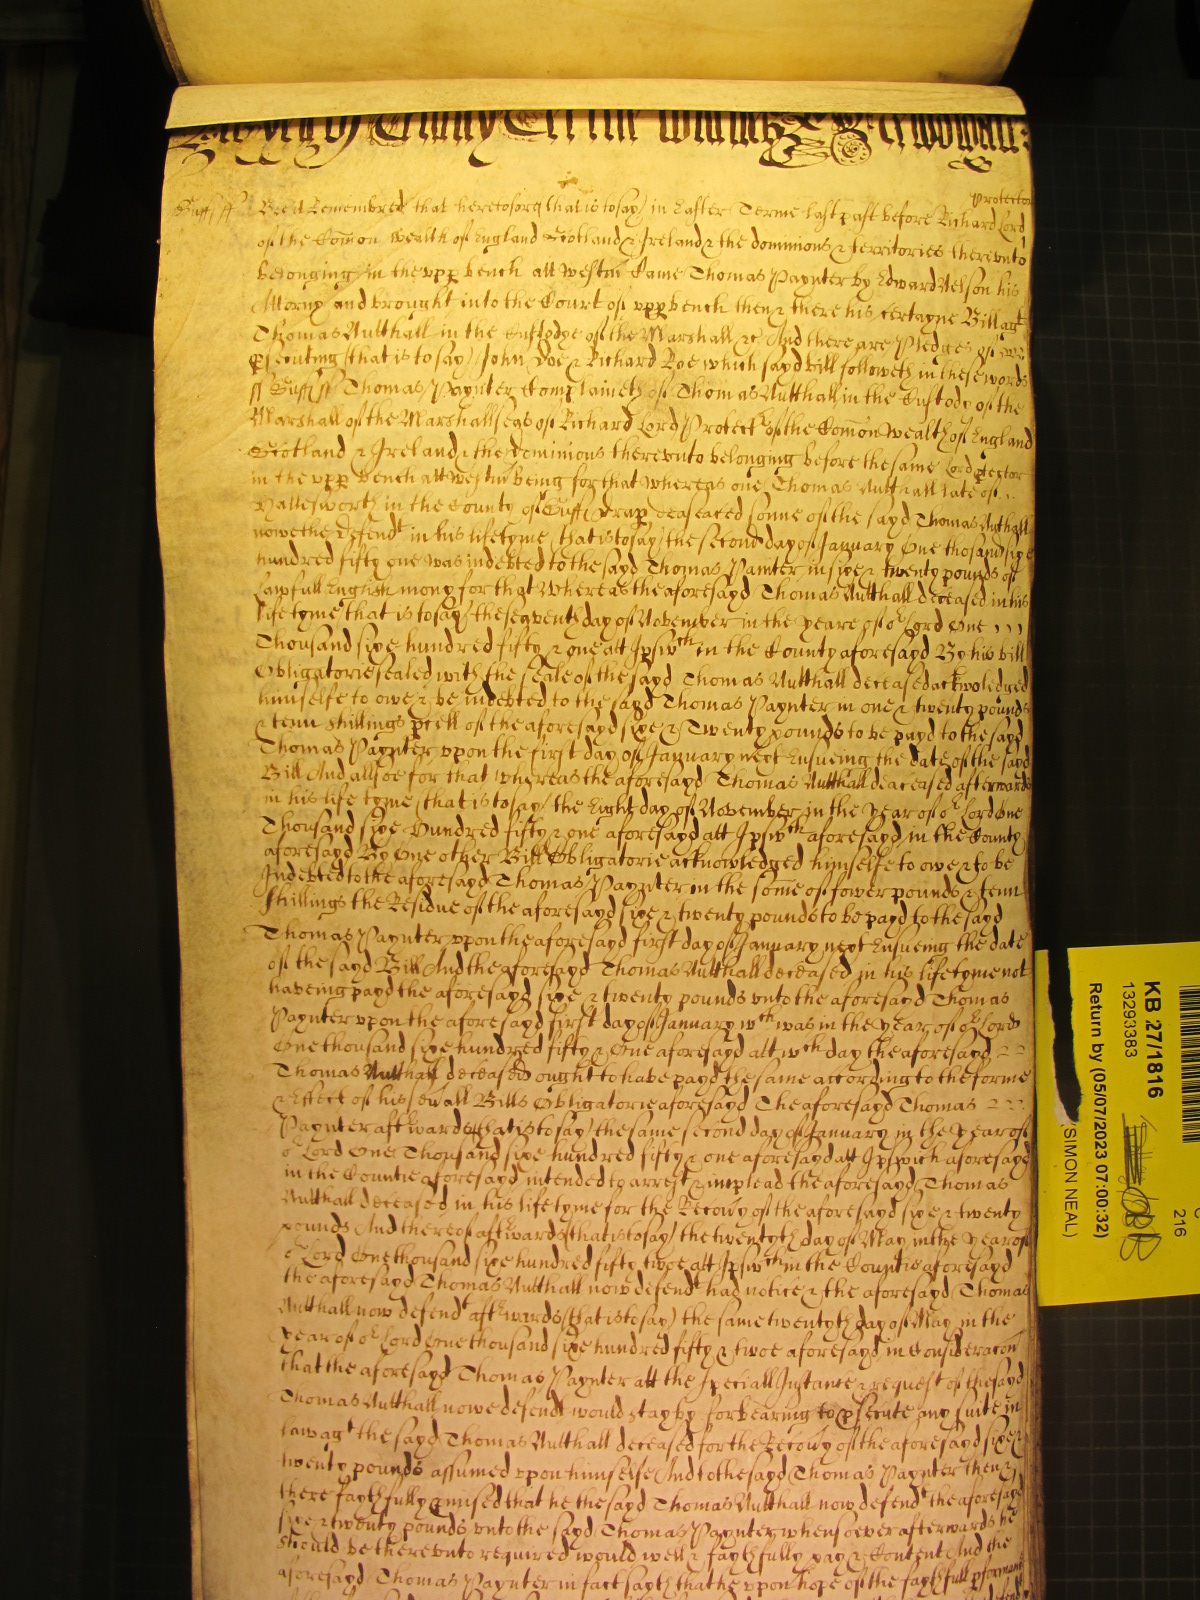 Trinity Terme
Protector
Suff ss Bee it Remembred that heretofore (that is to say) in Easter Terme last past before Richard Lord
of the Comon wealth of England Scotland & Ireland & the dominions & territories therevnto
belonging in the vpp bench att Westm Came Thomas Paynter by Edward Nelson his
Attorny and brought into the Court of vpp bench then & there his certayne Bill agt
Thomas Nutthall in the Custodye of the Marshall &c And there are Pledges of
psecuting (that is to say) John Doe & Richard Roe which sayd bill followeth in these words
ss Suff ss Thomas Paynter Complaineth of Thomas Nutthall in the Custody of the
Marshall of the Marshallsea of Richard Lord Protectr of the Comon wealth of England
Scotland & Ireland & the dominions therevnto belonging before the same Lord ptector
in the vpp bench att Westm being for that whereas one Thomas Nutthall late of
Hallesworth in the County of Suff drap deaseaced sonne of the sayd Thomas Nutthall
nowe the defendt in his lifetyme (that is to say) the second day of January One thosand sixe
hundred fifty one was indebted to the sayd Thomas Painter in sixe & twenty pounds of
Lawfull English mony for that Whereas the aforesayd Thomas Nutthall deceased in his
lifetyme that is to say the seaventh day of November in the yeare of or Lord One
Thousand sixe hundred fifty & one att Ipswth in the County aforesayd By his bill
Obligatorie sealed with the seale of the sayd Thomas Nutthall deceased acknoledged
himselfe to owe & be indebted to the sayd Thomas Paynter in one & twenty pounds
& tenn shillings pcell of the aforesayd sixe & Twenty pounds to be payd to the sayd
Thomas Paynter vpon the first day of January next Ensueing the date of the sayd
Bill And allsoe for that whereas the aforesayd Thomas Nutthall deaceased afterwards
in his life tyme (that is to say) the Eight day of November in the year of or Lord One
Thousand sixe Hundred fifty & one aforesayd att Ipswth aforesayd in the County
aforesayd By One other Bill Obligatorie acknowledged himselfe to owe & to be
Indebted to the aforesayd Thomas Paynter in the some of fower pounds & tenn
shillings the Residue of the aforesayd sixe & twenty pounds to be payd to the sayd
Thomas Paynter vpon the aforesayd first day of January next Ensueing the date
of the sayd Bill And the aforesayd Thomas Nutthall deceased in his lifetyme not
haveing payd the aforesayd sixe & twenty pounds vnto the aforesayd Thomas
Paynter vpon the aforesayd first day of January wch was in the year of or Lord
One thousand sixe hundred fifty & One aforesayd att wch day the aforesayd
Thomas Nutthall deceased ought to have payd the same according to the forme
& Effect of his sevall Bills Obligatorie aforesayd The aforesayd Thomas
Paynter aftwards (that is to say) the same second day of January in the year of
or Lord One Thousand sixe hundred fifty & one aforesayd att Ipswich aforesayd
in the Countie aforesayd intended to arrest & implead the aforesayd Thomas
Nutthall deceased in his lifetyme for the Recovy of the aforesayd sixe & twenty
pounds And thereof aftwards (that is to say) the twentyth day of May in the year of
or Lord One thousand sixe hundred fifty twoe att Ipswth in the Countie aforesayd
the aforesayd Thomas Nutthall now defendt had notice & the aforesayd Thomas
Nutthall now defendt aftwards (that is to say) the same twentyth day of May in the
year of or Lord One thousand sixe hundred fifty & twoe aforesayd in Consideracon
that the aforesayd Thomas Paynter att the speciall Instance & request of the sayd
Thomas Nutthall nowe defendt would stay by forbearing to psecute any suite in
law agt the sayd Thomas Nutthall deceased for the Recovy of the aforesayd sixe &
twenty pounds assumed vpon himselfe And to the sayd Thomas Paynter then &
there faythfully pmised that he the sayd Thomas Nutthall now defendt the aforesayd
sixe & twenty pounds vnto the sayd Thomas Paynter whensoever afterwards he
should be therevnto required would well & faythfully pay & Content And the
aforesayd Thomas Paynter in fact sayth that he vpon hope of the faythfull pformance
KB 27/1816
13293383
Return by (05/07/2023 07:00:32)
(SIMON NEAL)
216